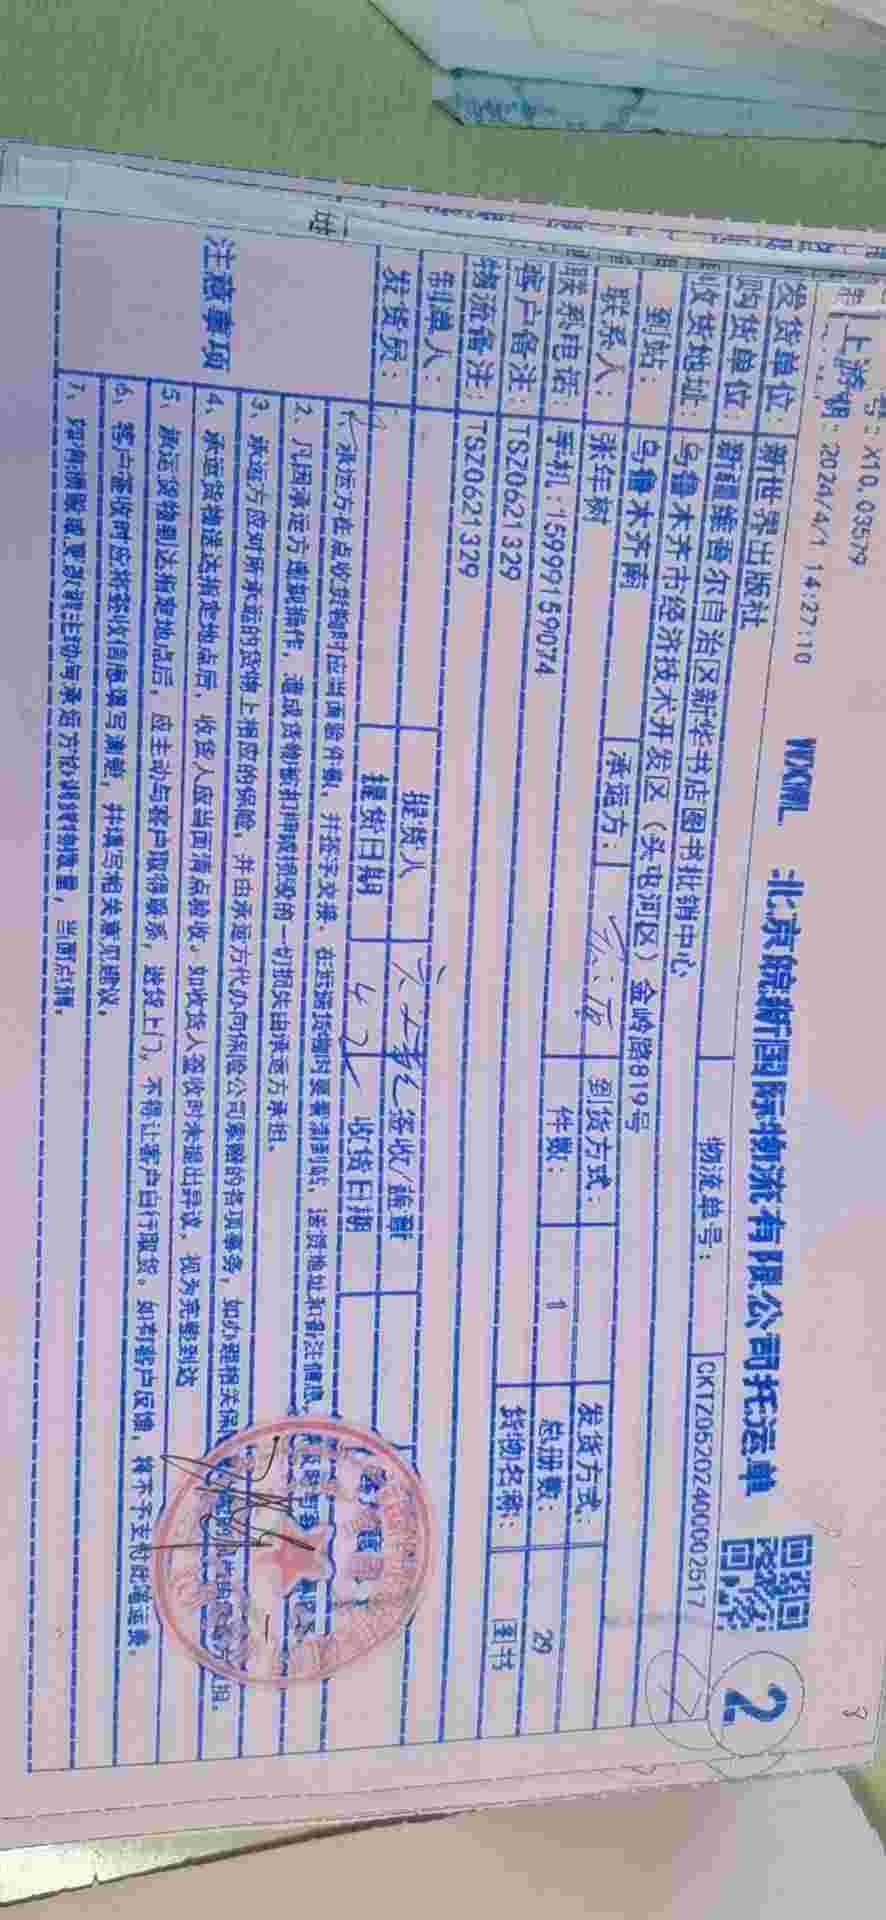 号：X10.03579
上游 2024/4/1 14:27:10
WXWL 北京皖新国际物流有限公司托运单 2
发货单位： 新世界出版社 物流单号： CKTZ05202400002517
购货单位： 新疆维吾尔自治区新华书店图书批销中心
收货地址： 乌鲁木齐市经济技术开发区（头屯河区）金岭路819号
到站： 乌鲁木齐南 承运方： 到货方式： 发货方式：
联系人： 张年树 件数： 1 总册数： 29
联系电话： 手机：15999159074 货物名称： 图书
客户备注： TSZ0621329
物流备注： TSZ0621329
制单人： 提货人 签收/盖章
发货员： 提货日期 4.2 收货日期
注意事项
1、承运方在点收货物时应当面验件数，并签字交接。在运输货物时要看清到站、送货地址和备注信息，
2、凡因承运方违规操作，造成货物被扣押或损毁的一切损失由承运方承担。
3、承运方应对所承运的货物上相应的保险，并由承运方代办向保险公司索赔的各项事务，如办理相关保
4、承运货物送达指定地点后，收货人应当面清点验收。如收货人签收时未提出异议，视为完整到达
5、承运货物到达指定地点后，应主动与客户取得联系，送货上门，不得让客户自行取货。如有客户反馈，将不予支付运输运费。
6、客户签收时应将签收信息填写清楚，并填写相关意见建议。
7、如有 主动与承运方 数量，当面点清。